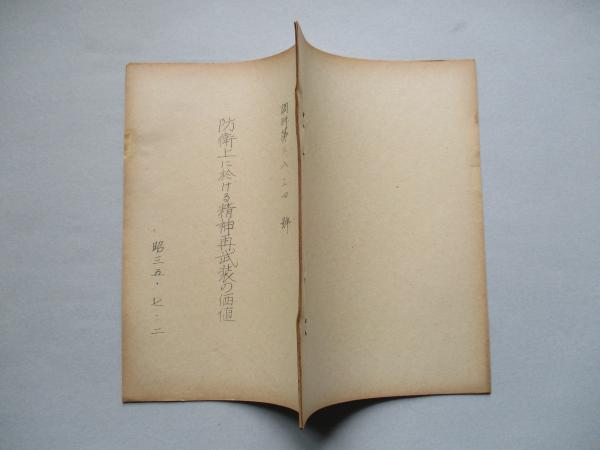 資料第三八二四号
防衛上に於ける精神再武装の価値
昭三五・七・二